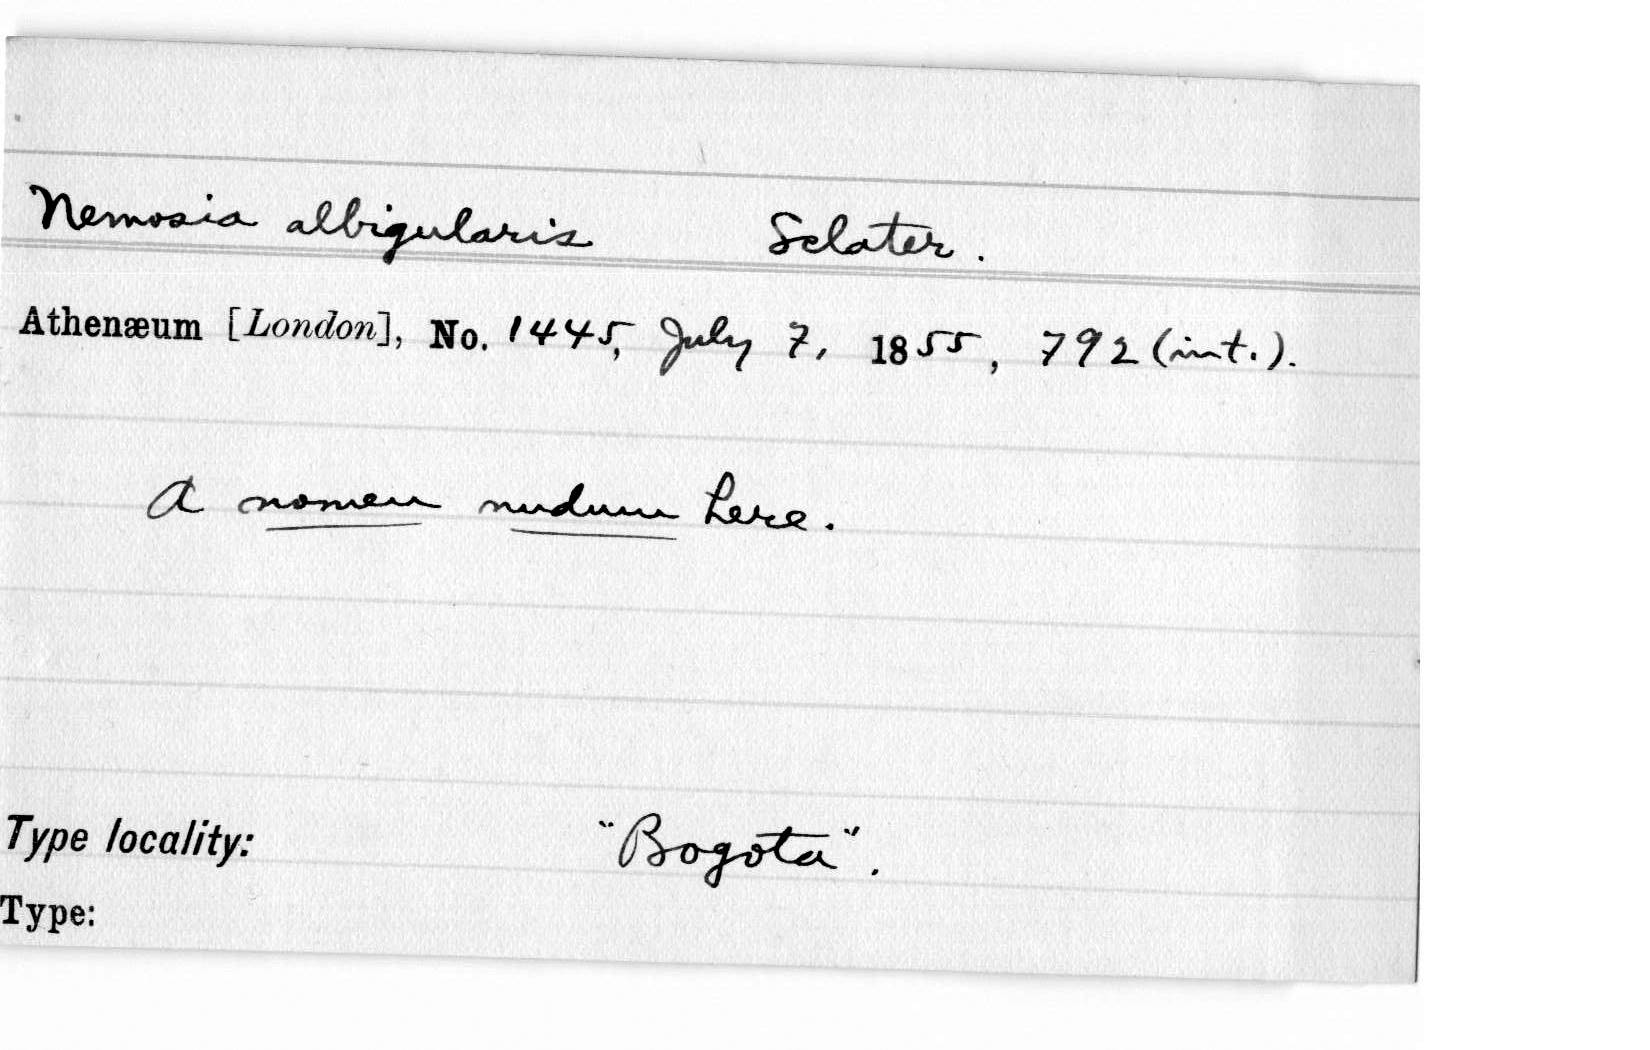 Nemosia albigularis Sclater.
Athenæum [London], No. 1445, July 7, 1855, 792 (int.).
A nomen nudum here.
Type locality: "Bogota".
Type: